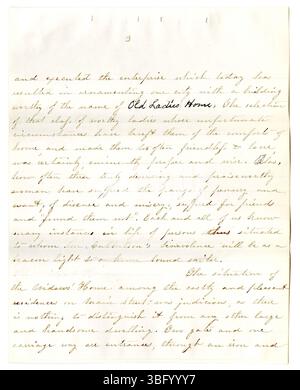 3
and executed the enterprise which today has
resulted in ornamenting our city with a building
worthy of the name of Old Ladies Home. The selection
of that class of worthy ladies whose unfortunate
circumstances have bereft them of the comforts of
home and made them so often friendship & love
was certainly eminently proper and wise. Alas,
how often these truly deserving and praiseworthy
women have suffered the pangs of penury and
want, of disease and misery, sighed for friends
and "found them not". Each and all of us know
many instances in life of persons thus situated
to whom Mr. benevolence will be as a
beacon light to a home bound sailor.
The situation of
the Widows' Home among the costly and pleasant
residences on Main street was judicious, as there
is nothing to distinguish it from any other large
and handsome dwelling. One gate and one
carriage way are entrance, through an iron and